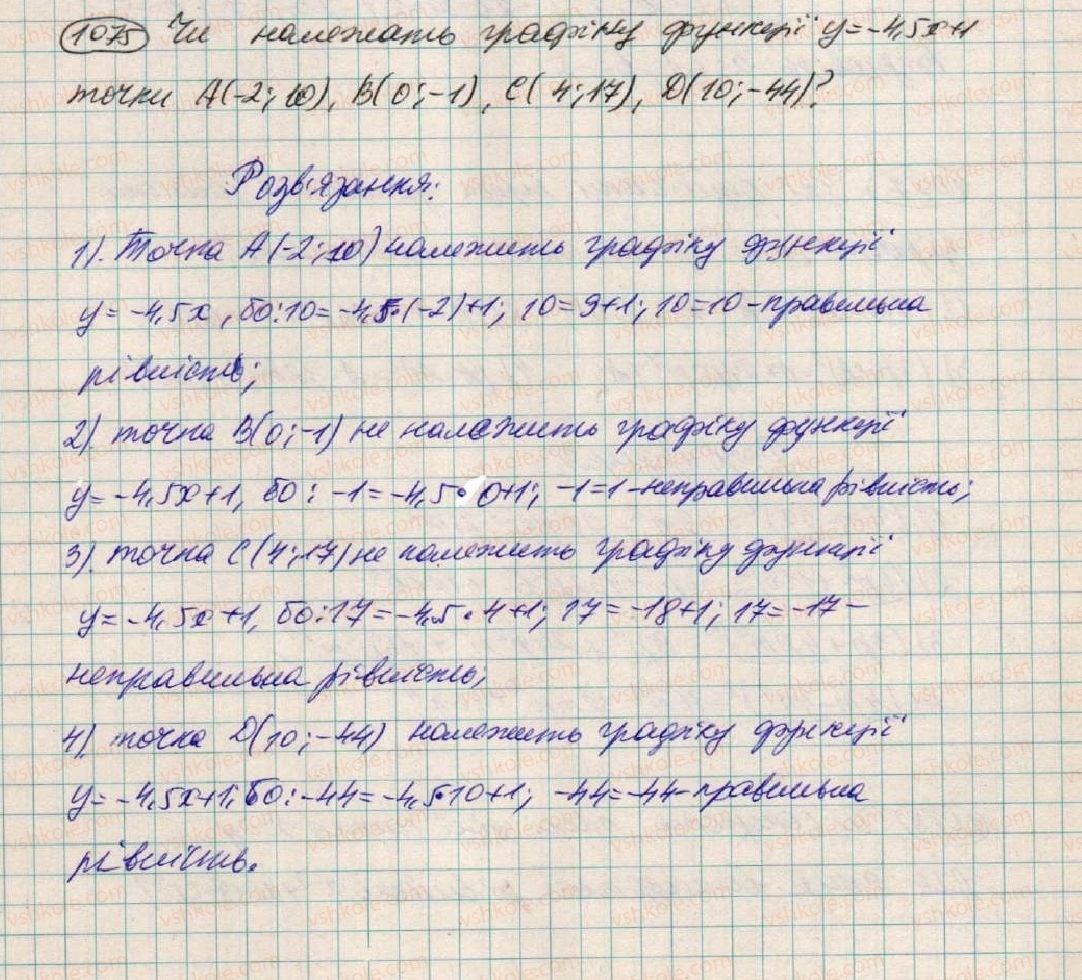 1075 Чи належать графіку функції y=-4,5x+1
точки A(-2;10), B(0;-1), C(4;17), D(10;-44)?
Розв'язання:
1). Точка A(-2;10) належить графіку функції
y=-4,5x, бо: 10=-4,5·(-2)+1; 10=9+1; 10=10 - правильна
рівність;
2) точка B(0;-1) не належить графіку функції
y=-4,5x+1, бо: -1=-4,5·0+1; -1=1 - неправильна рівність;
3). точка C(4;17) не належить графіку функції
y=-4,5x+1, бо: 17=-4,5·4+1; 17=-18+1; 17=-17 -
неправильна рівність;
4) точка D(10;-44) належить графіку функції
y=-4,5x+1, бо: -44=-4,5·10+1; -44=-44 - правильна
рівність.
vshkole.com